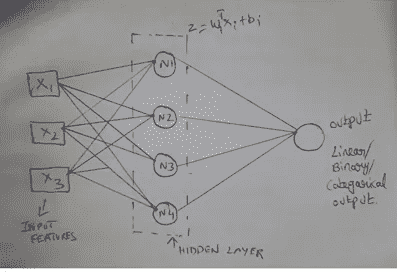 z = wᵢᵀxᵢ + bᵢ
X1
X2
X3
N1
N2
N3
N4
INPUT
FEATURES
HIDDEN LAYER
output
Linear/
Binary/
Categorical
output.